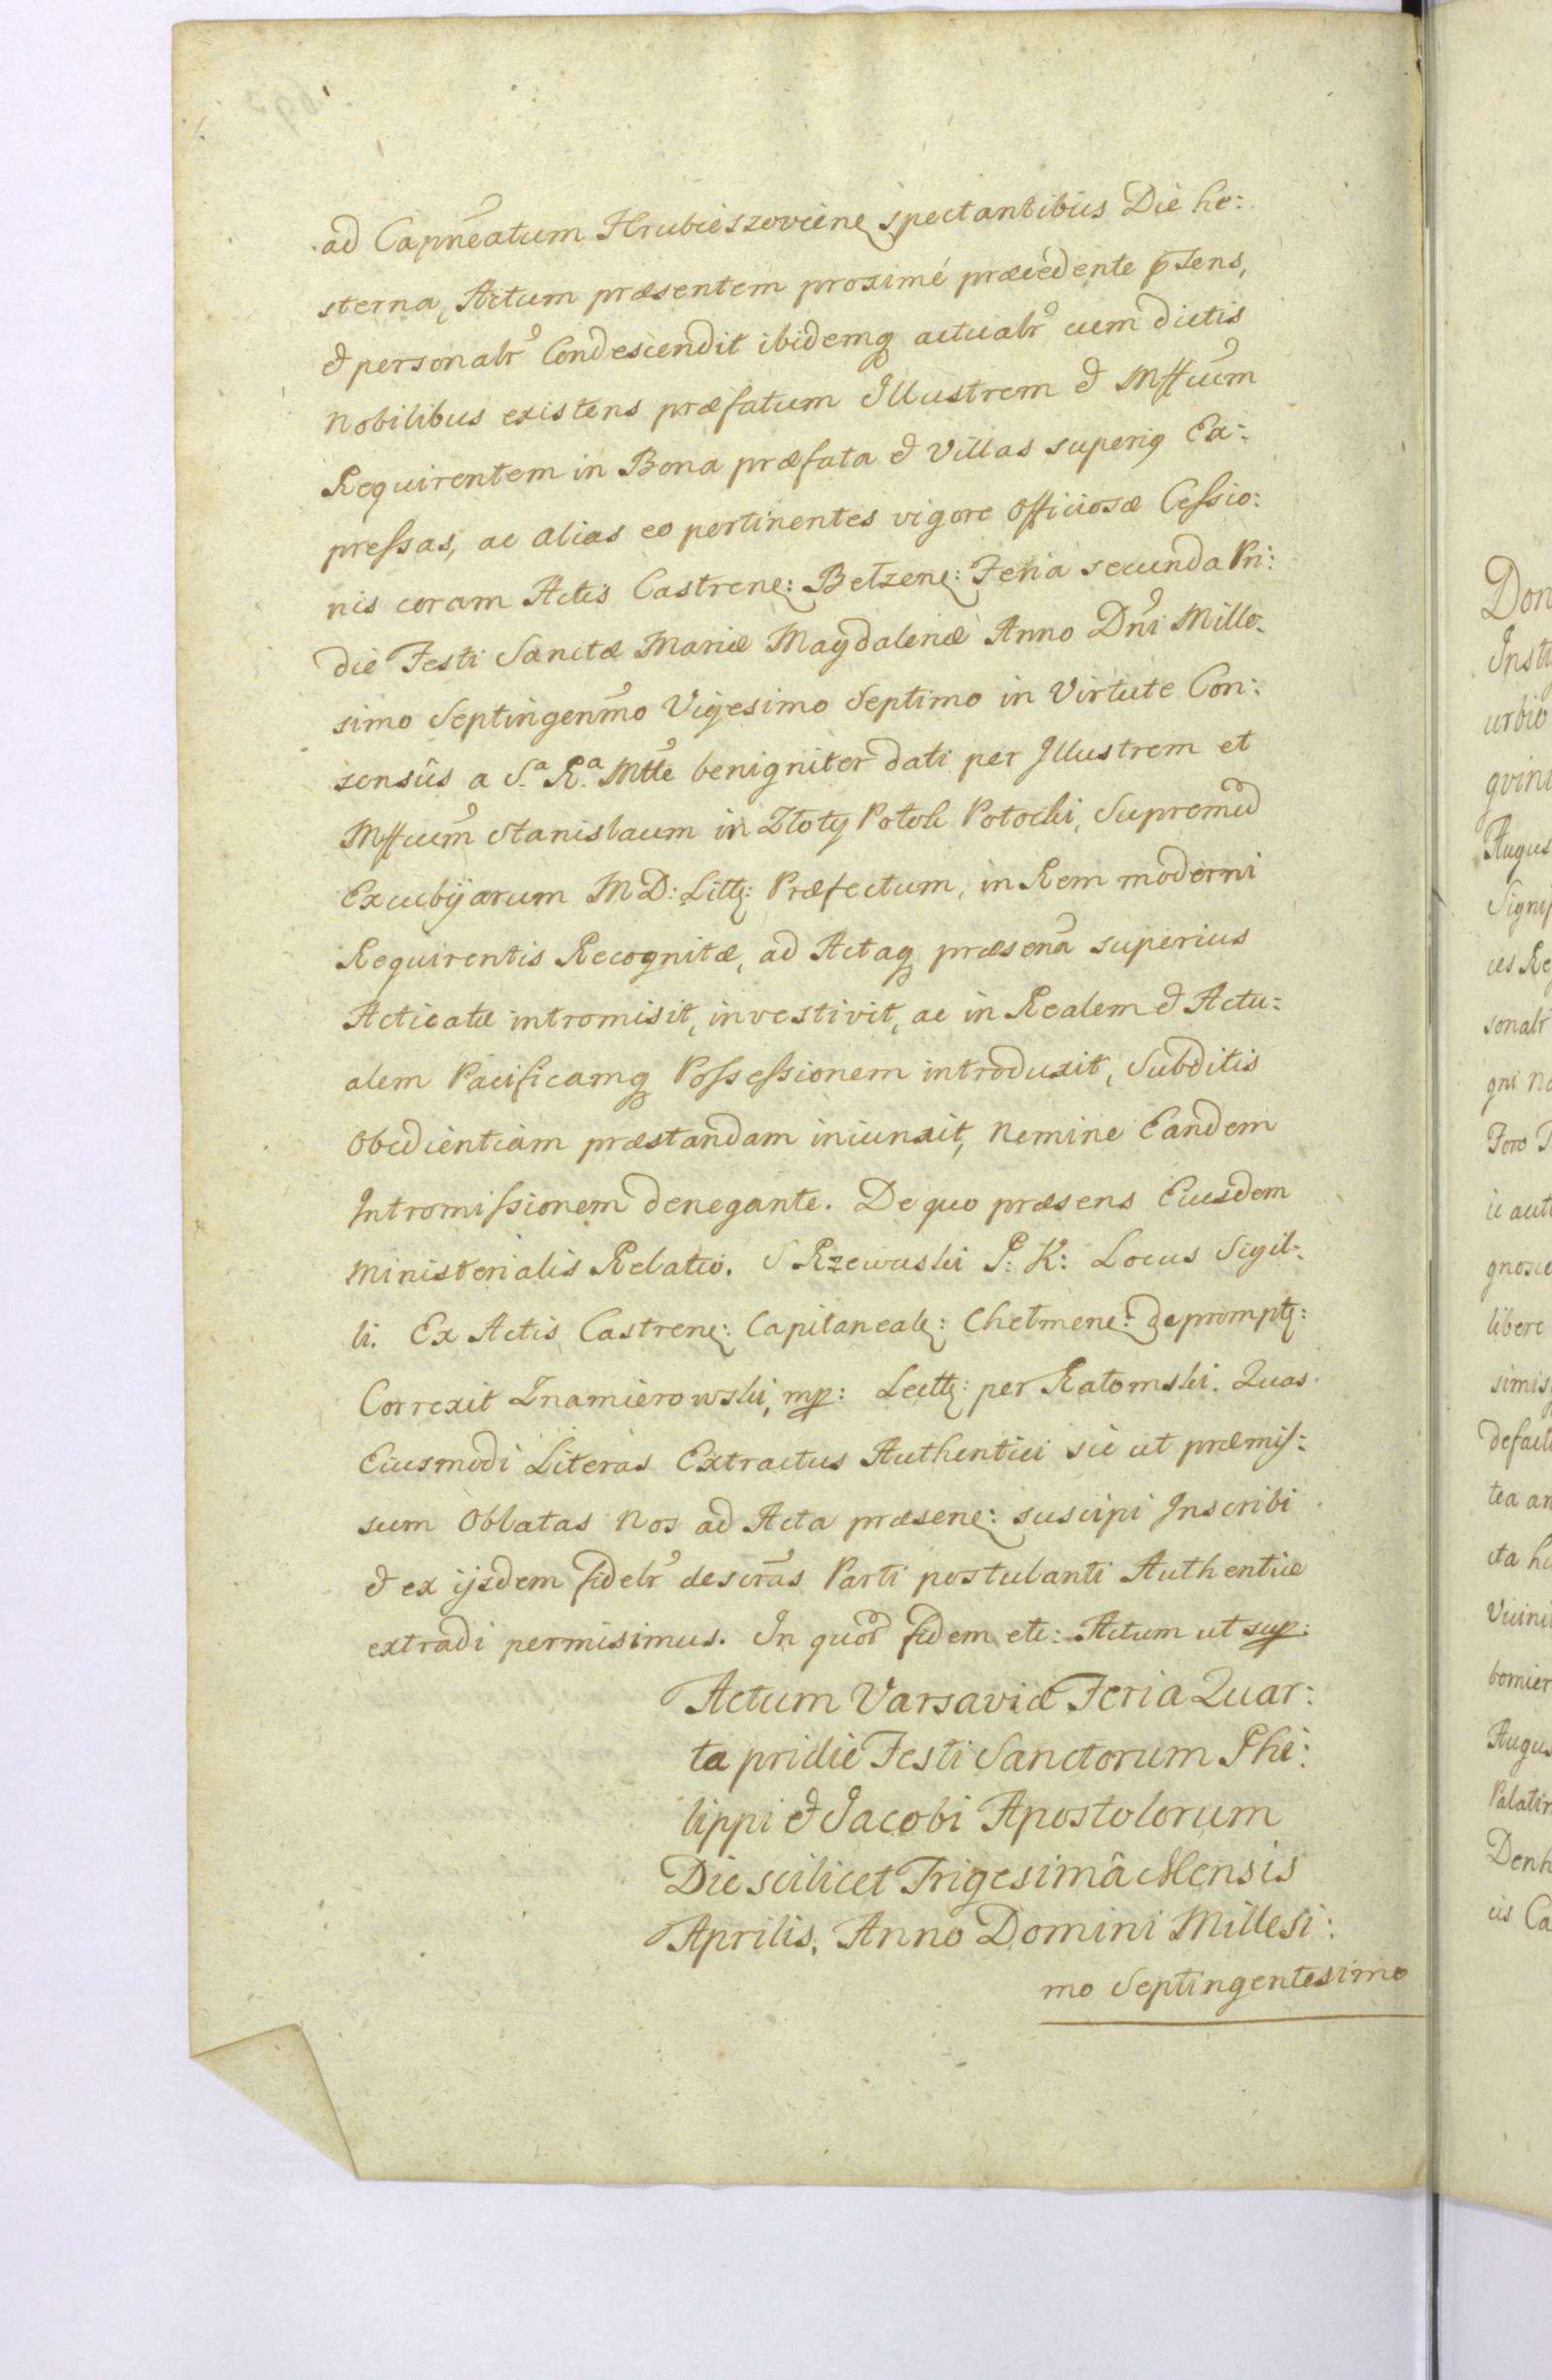 ad Capneatum Hrubieszoviens spectantibus Die he:
sterna, Actum præsentem proximé præcedente p̄sens,
& personalr Condescendit ibidemq actualr cum dictis
Nobilibus existens præfatum Illustrem & Mffcum
Requirentem in Bona præfata & Villas superiq Ex:
pressas, ac alias eo pertinentes vigore Officiosæ Cessio:
nis coram Actis Castrens: Betzens: Feria secunda Pri:
die Festi Sanctæ Mariæ Magdalenæ Anno Dni Mille-
simo Septingenmo Vigesimo Septimo in Virtute Con:
sensûs a S.a R.a Mtte benigniter dati per Illustrem et
Mffcum Stanislaum in Złoty Potok Potocki, Supremu
Excubijarum M D: Litt: Præfectum, in Rem moderni
Requirentis Recognitæ, ad Actaq præsena superius
Acticatæ intromisit, investivit, ac in Realem & Actu:
alem Pacificamq Possessionem introduxit, Subditis
Obedientiam præstandam iniunxit, Nemine Eandem
Intromissionem denegante. De quo præsens Eiusdem
Ministerialis Relatio. S Rzewuski P: K: Locus Sigil:
li. Ex Actis Castrens: Capitaneal: Chelmens: deprompt:
Correxit Znamierowski, mp: Lectt: per Ratomski. Quas
Eiusmodi Literas Extractus Authentici sic ut præmis:
sum Oblatas Nos ad Acta præsens: suscipi Inscribi
& ex ijsdem fidelr descras Parti postulanti Authentice
extradi permisimus. In quor fidem etc: Actum ut sup:
Actum Varsaviæ Feria Quar:
ta pridie Festi Sanctorum Phi:
lippi & Jacobi Apostolorum
Die scilicet Trigesimâ Mensis
Aprilis, Anno Domini Millesi:
mo Septingentesimo
Don
Insti
urbio
qvini
Augus
Signif
ces Re
sonalr
gni No
Foro
ic aut
gnosce
libere
simis
defact
tea an
cta h
Vicini
bomier
Augus
Palatin
Denh
cis Ca